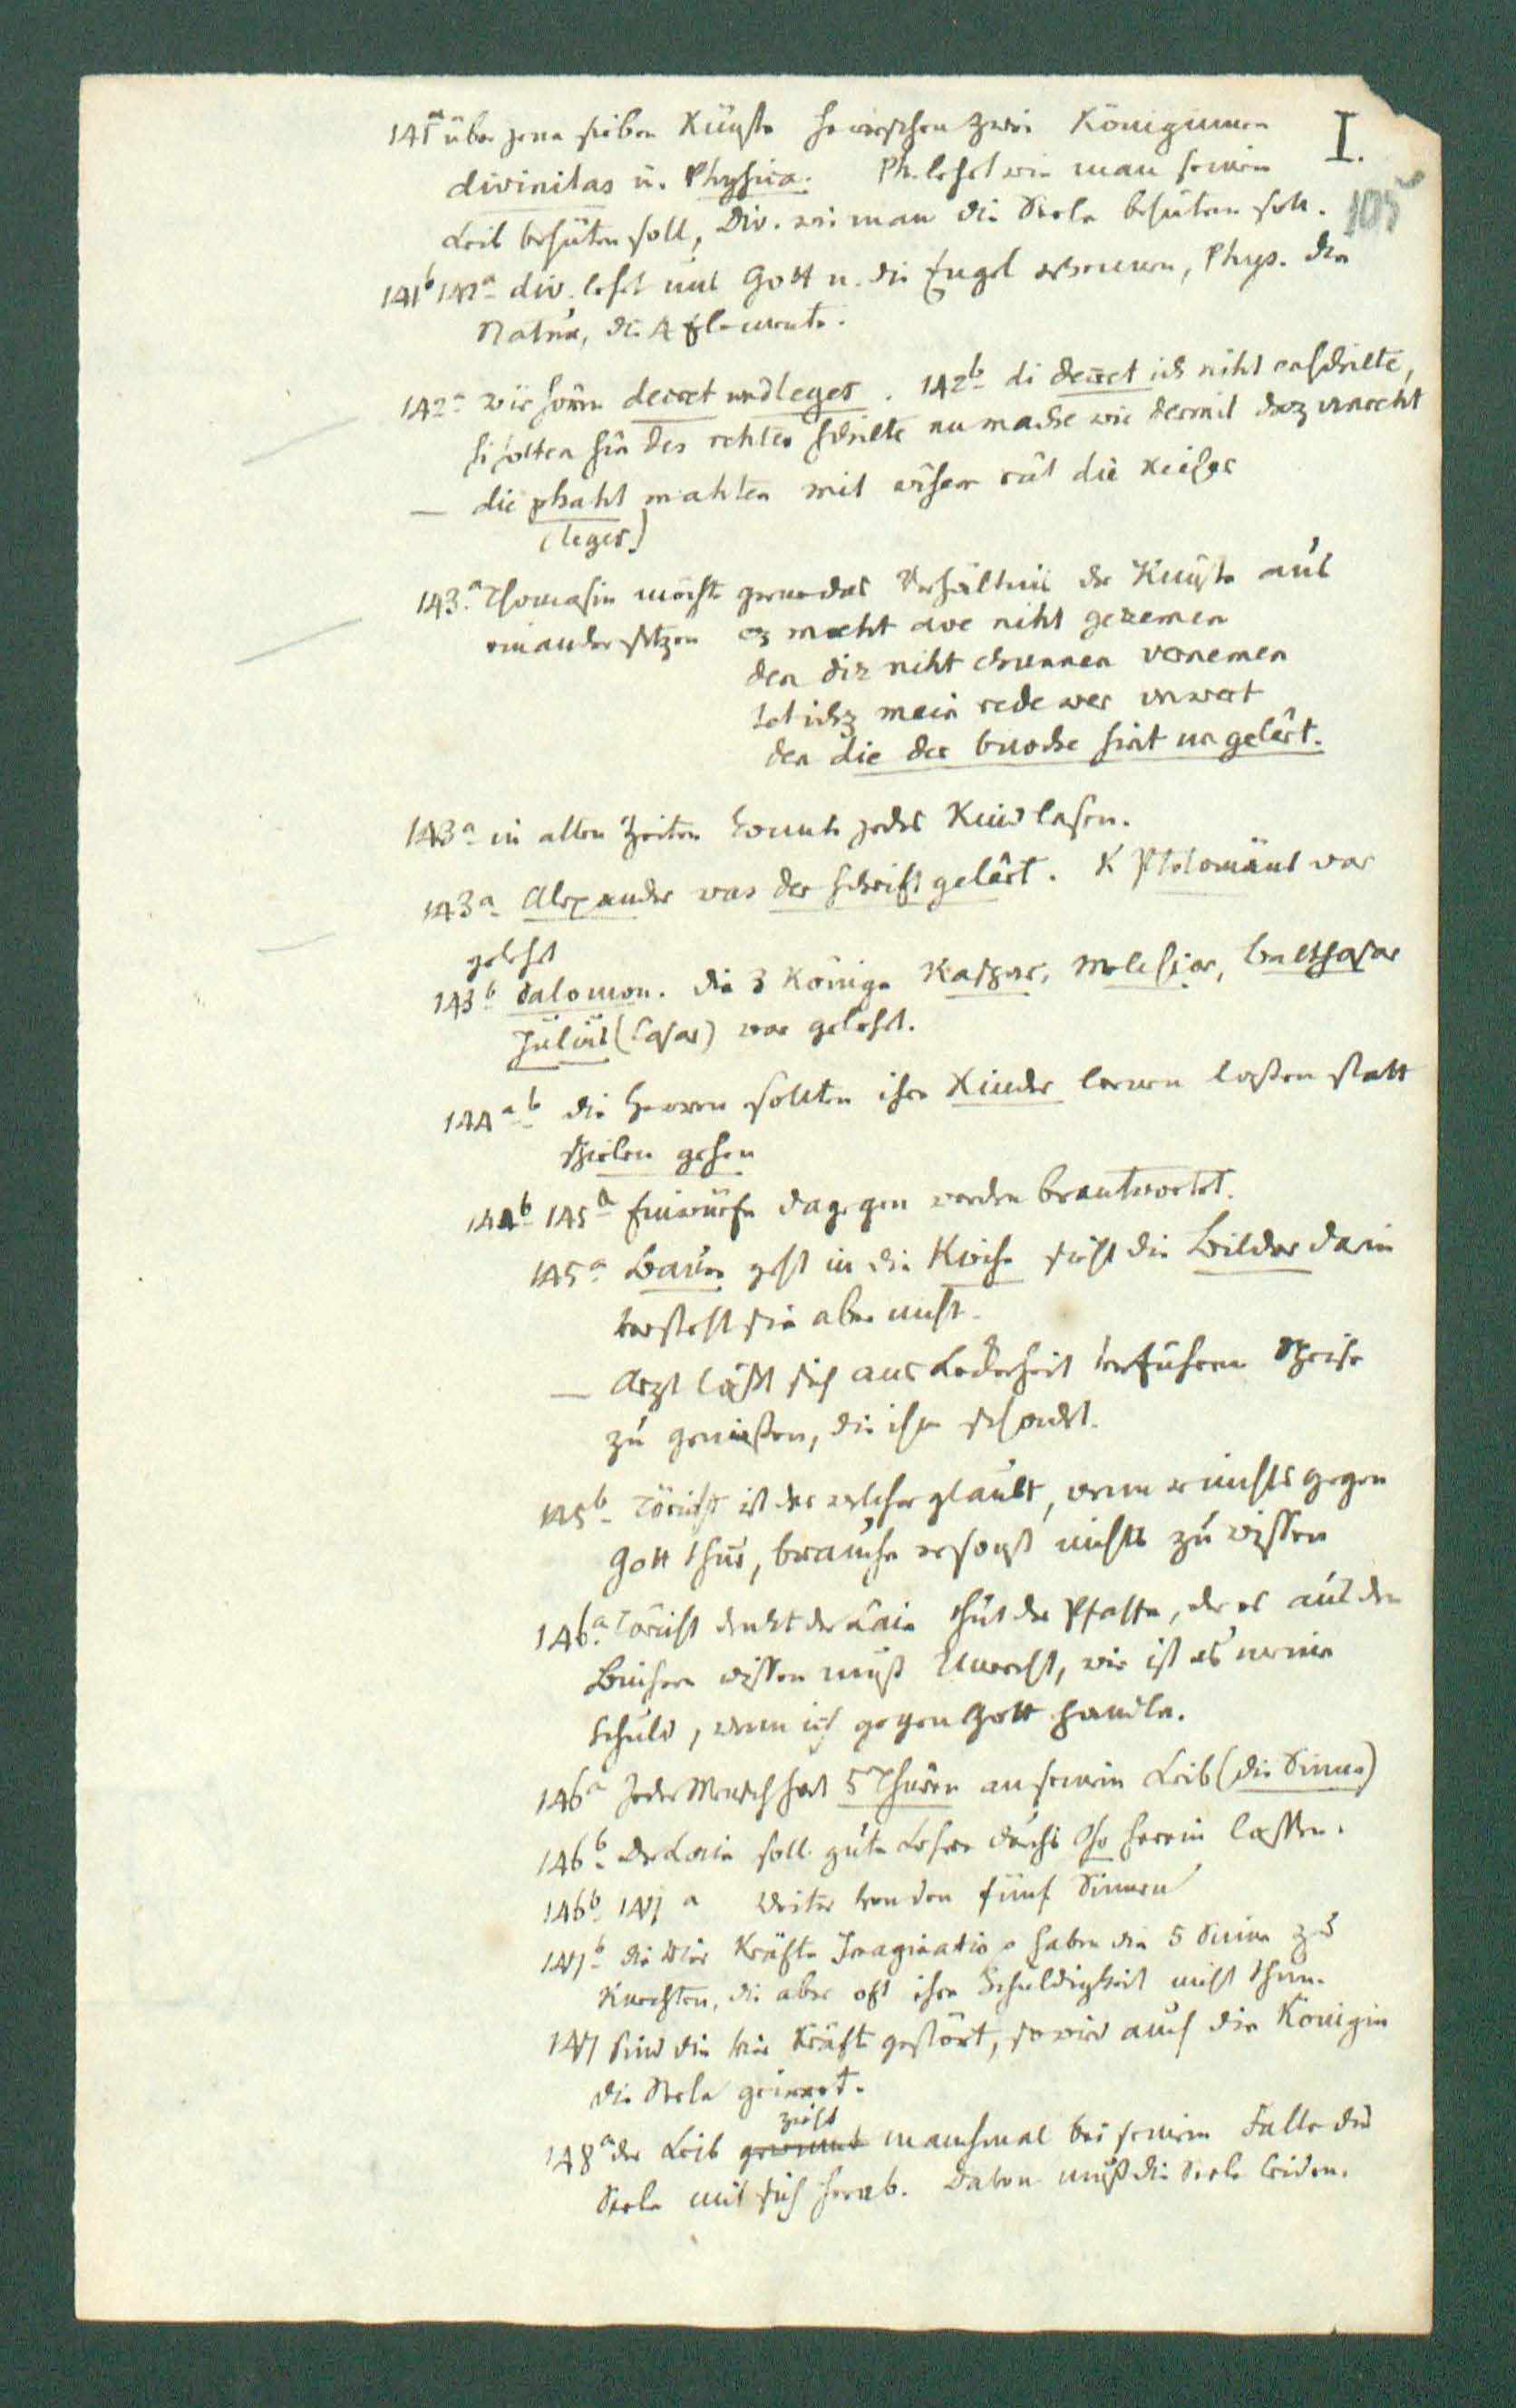 I.
105
141a über jene sieben Künste herrschen zwei Königinnen
divinitas u. Physica. Ph. lehrt wie man seinen
Leib behüten soll, Div. wie man die Seele behüten soll.
141b 142a div. lehrt uns Gott u. die Engel erkennen, Phys. die
Natur, die 4 Elemente.
142a wir hörn decret und leges. 142b di decret ich niht enschilte,
si solten sin des rehtes schilte nu mache wir dermit daz unreht
— die phaht mahten mit wisem rât die Keiser
(leges)
143a Thomasin möchte gerne das Verhältnis der Künste aus
einandersetzen ez maeht ave niht gezemen
den diz niht chunnen vernemen
tet ichz mein rede wer unwert
den die der buoche sint ungelêrt.
143a in alten Zeiten konnte jedes Kind lesen.
143a Alexander was der schrift gelêrt. K Ptolomäus war
gelehrt
143b Salomon. die 3 Könige Kaspar, Melchior, Balthasar
Julius (Cäsar) war gelehrt.
144a b die Herren sollten ihre Kinder lernen lassen statt
spielen gehen
144b 145a Einwürfe dagegen werden beantwortet.
145a Bauer geht in die Kirche sieht die Bilder darin
versteht sie aber nicht.
— Arzt läßt sich aus Leckerheit verführen Speise
zu genießen, die ihm schadet.
145b Töricht ist der welcher glaubt, wenn er nichts gegen
Gott thue, brauche er sonst nichts zu wissen
146a Töricht denkt der Laie thut der Pfaffe, der es aus den
Büchern wissen muß Unrecht, wie ist es meine
Schuld, wenn ich gegen Gott handle.
146a Jeder Mensch hat 5 Thüren an seinem Leib (die Sinne)
146b Der Laie soll gute Lehre durchs Ohr herein lassen.
146b 147a Weiter von den fünf Sinnen
147b die vier Kräfte Imaginatio haben die 5 Sinne zu
Knechten, die aber oft ihre Schuldigkeit nicht thun.
147 Sind die vier Kräfte gestört, so wird auch die Königin
die Seele geirret.
zieht
148a der Leib manchmal bei seinem Falle die
Seele mit sich herab. Davon muß die Seele leiden.